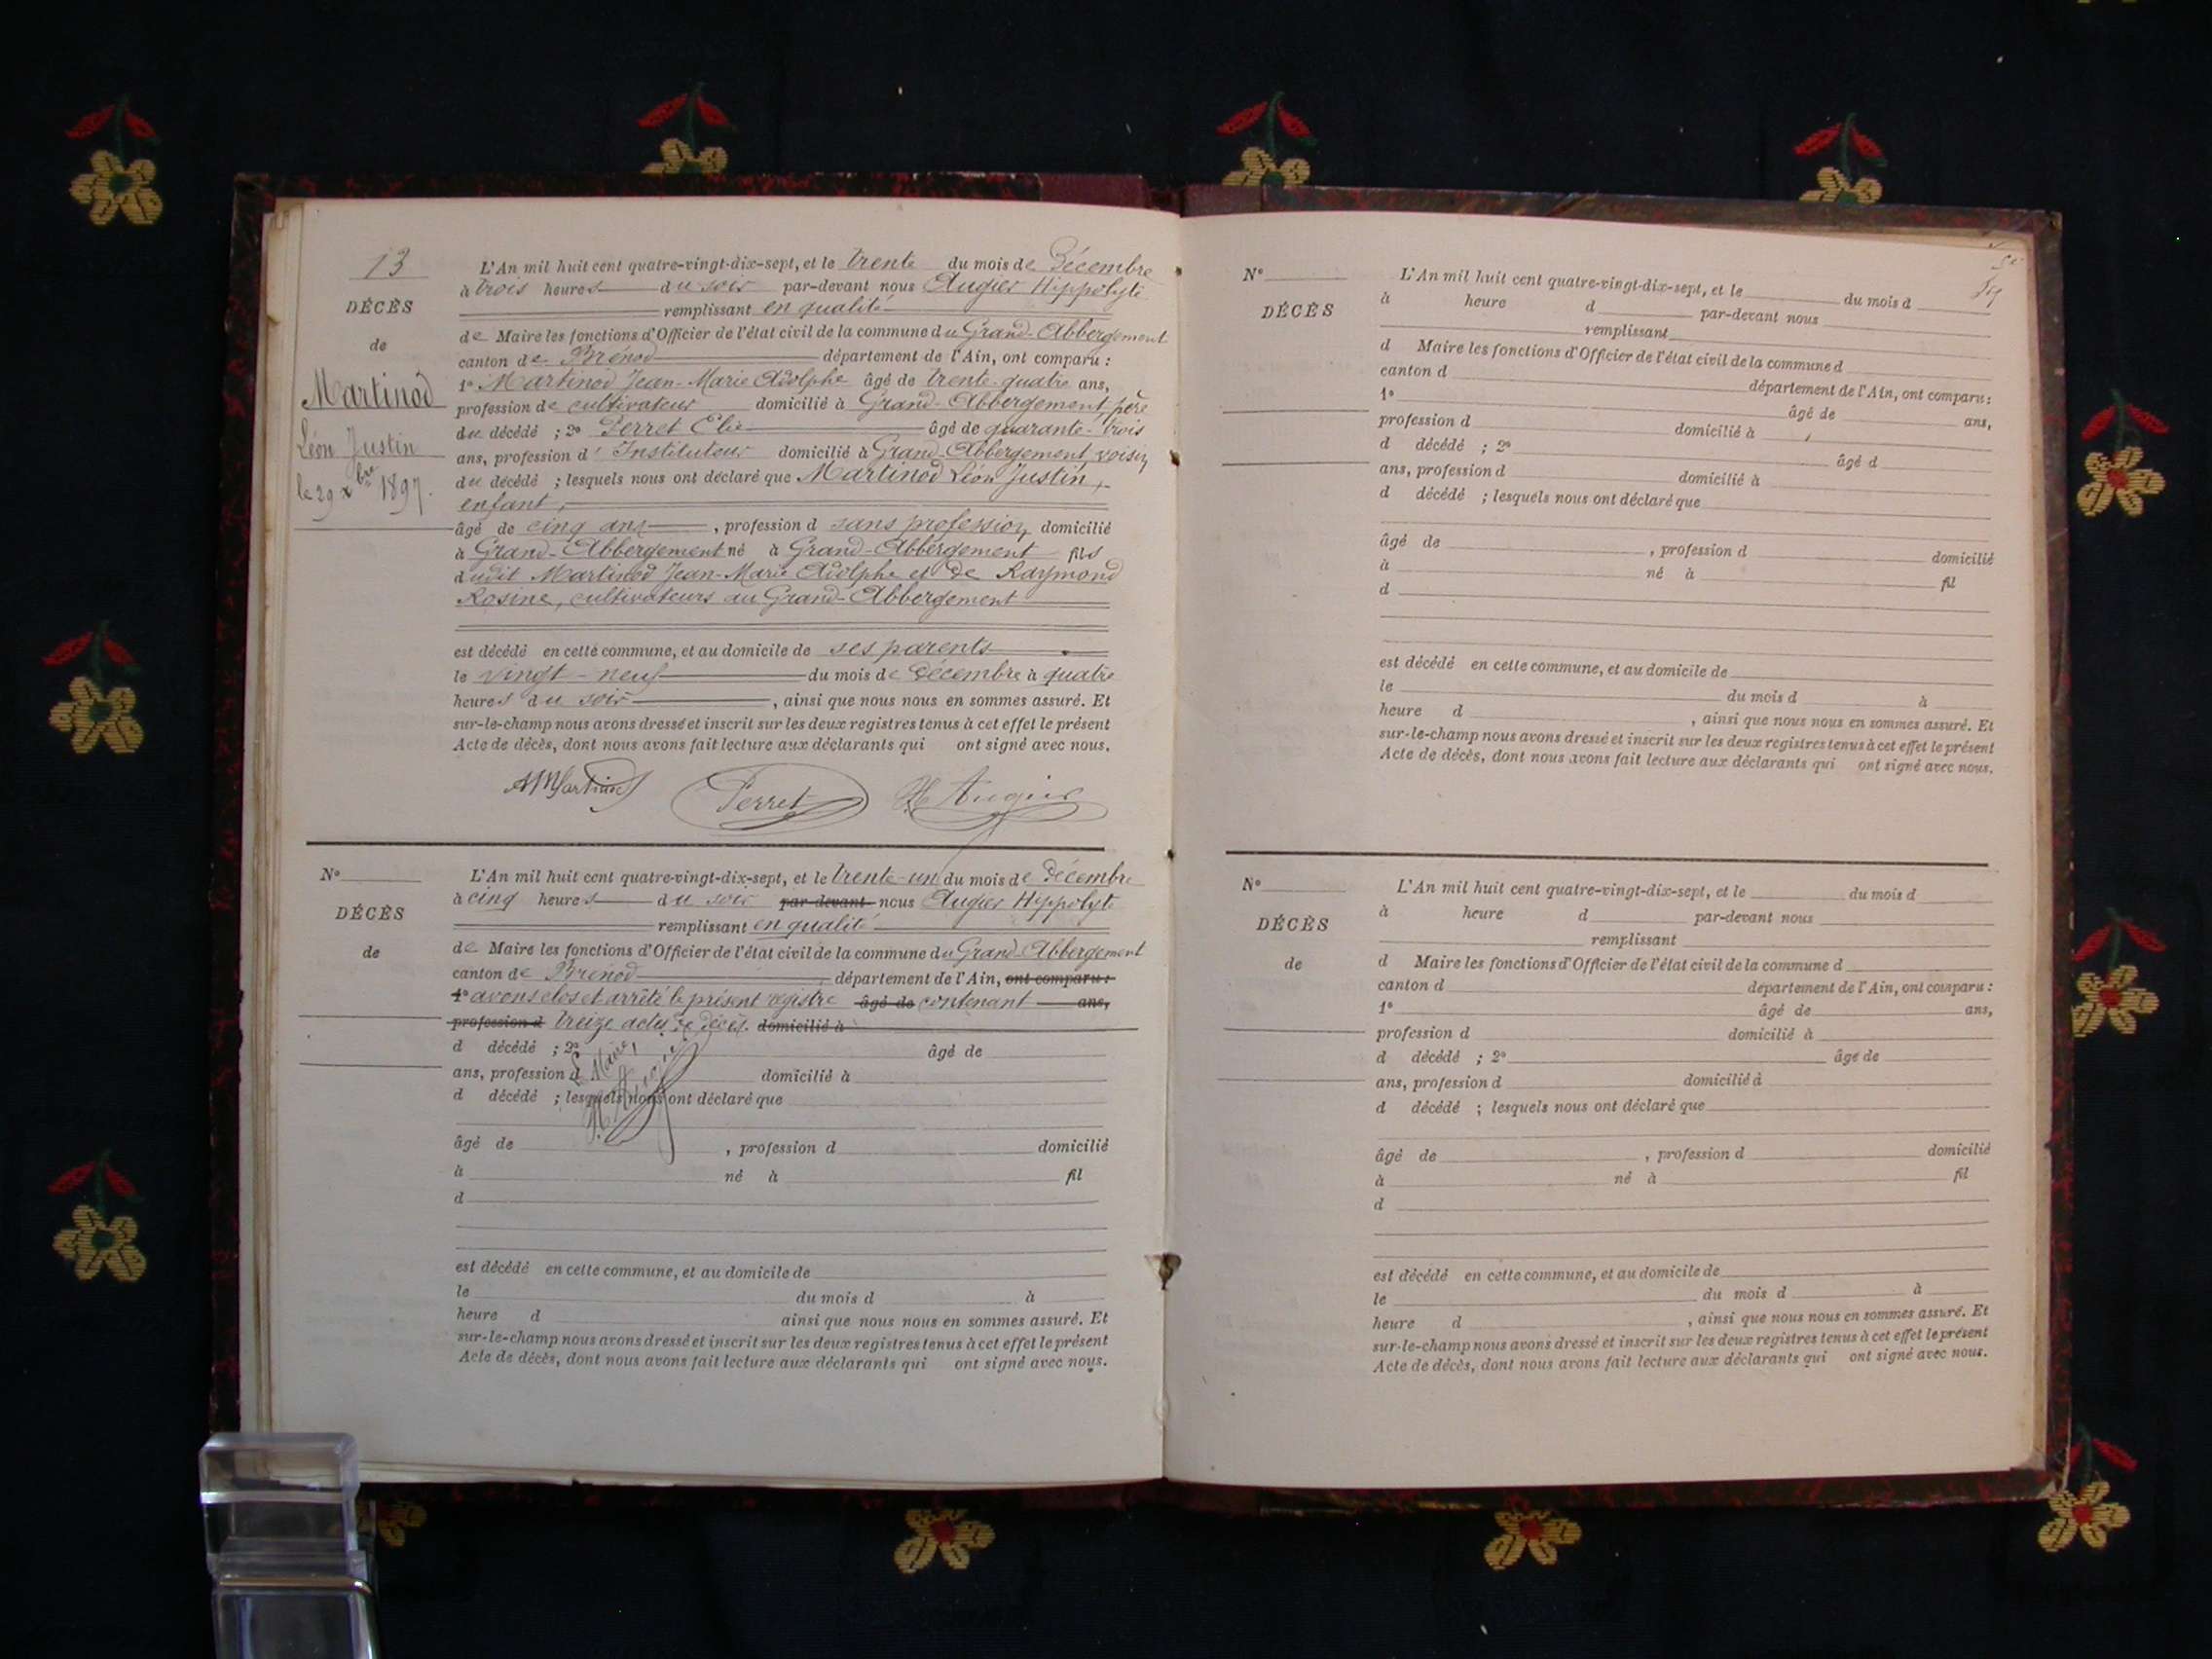 13
DÉCÈS
de
Martinod
Léon Justin
le 29 xbre 1897.
L'An mil huit cent quatre-vingt-dix-sept, et le trente du mois de Décembre
à trois heures du soir par-devant nous Augier Hippolyte
remplissant en qualité
de Maire les fonctions d'Officier de l'état civil de la commune du Grand-Abbergement
canton de Brénod département de l'Ain, ont comparu :
1º Martinod Jean-Marie Adolphe âgé de trente-quatre ans,
profession de cultivateur domicilié à Grand-Abbergement père
du décédé ; 2º Perret Elie âgé de quarante-trois
ans, profession d'Instituteur domicilié à Grand-Abbergement voisin
du décédé ; lesquels nous ont déclaré que Martinod Léon Justin,
enfant,
âgé de cinq ans , profession d sans profession domicilié
à Grand-Abbergement né à Grand-Abbergement fils
dudit Martinod Jean-Marie Adolphe et de Raymond
Rosine, cultivateurs au Grand-Abbergement
est décédé en cette commune, et au domicile de ses parents
le vingt-neuf du mois de décembre à quatre
heures du soir , ainsi que nous nous en sommes assuré. Et
sur-le-champ nous avons dressé et inscrit sur les deux registres tenus à cet effet le présent
Acte de décès, dont nous avons fait lecture aux déclarants qui ont signé avec nous.
AMartinod Perret H Augier
Nº
DÉCÈS
de
L'An mil huit cent quatre-vingt-dix-sept, et le trente-un du mois de décembre
à cinq heures du soir par-devant nous Augier Hippolyte
remplissant en qualité
de Maire les fonctions d'Officier de l'état civil de la commune du Grand-Abbergement
canton de Brénod , département de l'Ain, ont comparu :
1º avons clos et arrêté le présent registre âgé de contenant ans,
profession d treize actes de décès. domicilié à
d décédé ; 2º âgé de
Le Maire,
ans, profession d domicilié à
H. Augier
d décédé ; lesquels nous ont déclaré que
âgé de , profession d domicilié
à né à fil
d
est décédé en cette commune, et au domicile de
le du mois d à
heure d ainsi que nous nous en sommes assuré. Et
sur-le-champ nous avons dressé et inscrit sur les deux registres tenus à cet effet le présent
Acte de décès, dont nous avons fait lecture aux déclarants qui ont signé avec nous.
Nº
DÉCÈS
L'An mil huit cent quatre-vingt-dix-sept, et le du mois d
à heure d par-devant nous
remplissant
d Maire les fonctions d'Officier de l'état civil de la commune d
canton d département de l'Ain, ont comparu :
1º âgé de ans,
profession d domicilié à
d décédé ; 2º âgé d
ans, profession d domicilié à
d décédé ; lesquels nous ont déclaré que
âgé de , profession d domicilié
à né à fil
d
est décédé en cette commune, et au domicile de
le du mois d à
heure d , ainsi que nous nous en sommes assuré. Et
sur-le-champ nous avons dressé et inscrit sur les deux registres tenus à cet effet le présent
Acte de décès, dont nous avons fait lecture aux déclarants qui ont signé avec nous.
Nº
DÉCÈS
de
L'An mil huit cent quatre-vingt-dix-sept, et le du mois d
à heure d par-devant nous
remplissant
d Maire les fonctions d'Officier de l'état civil de la commune d
canton d département de l'Ain, ont comparu :
1º âgé de ans,
profession d domicilié à
d décédé ; 2º âgé de
ans, profession d domicilié à
d décédé ; lesquels nous ont déclaré que
âgé de , profession d domicilié
à né à fil
d
est décédé en cette commune, et au domicile de
le du mois d à
heure d , ainsi que nous nous en sommes assuré. Et
sur-le-champ nous avons dressé et inscrit sur les deux registres tenus à cet effet le présent
Acte de décès, dont nous avons fait lecture aux déclarants qui ont signé avec nous.